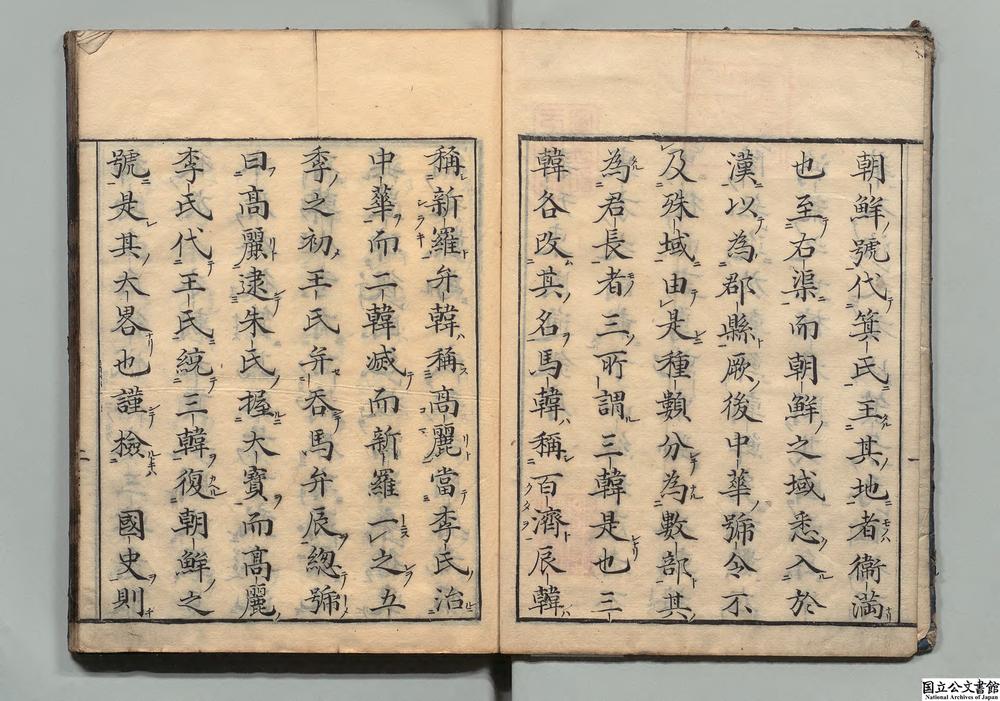 朝鮮號代箕氏王其地者衞滿
也至右渠而朝鮮之域悉入於
漢以為郡縣厥後中華號令不
及殊域由是種類分為數部其
為君長者三所謂三韓是也三
韓各改其名馬韓稱百濟辰韓
稱新羅弁韓稱高麗當李氏治
中華而二韓滅而新羅一之五
季之初王氏并吞馬弁辰總號
曰高麗逮朱氏握大寶而高麗
李氏代王氏統三韓復朝鮮之
號是其大畧也謹檢 國史則
一
二
国立公文書館
National Archives of Japan